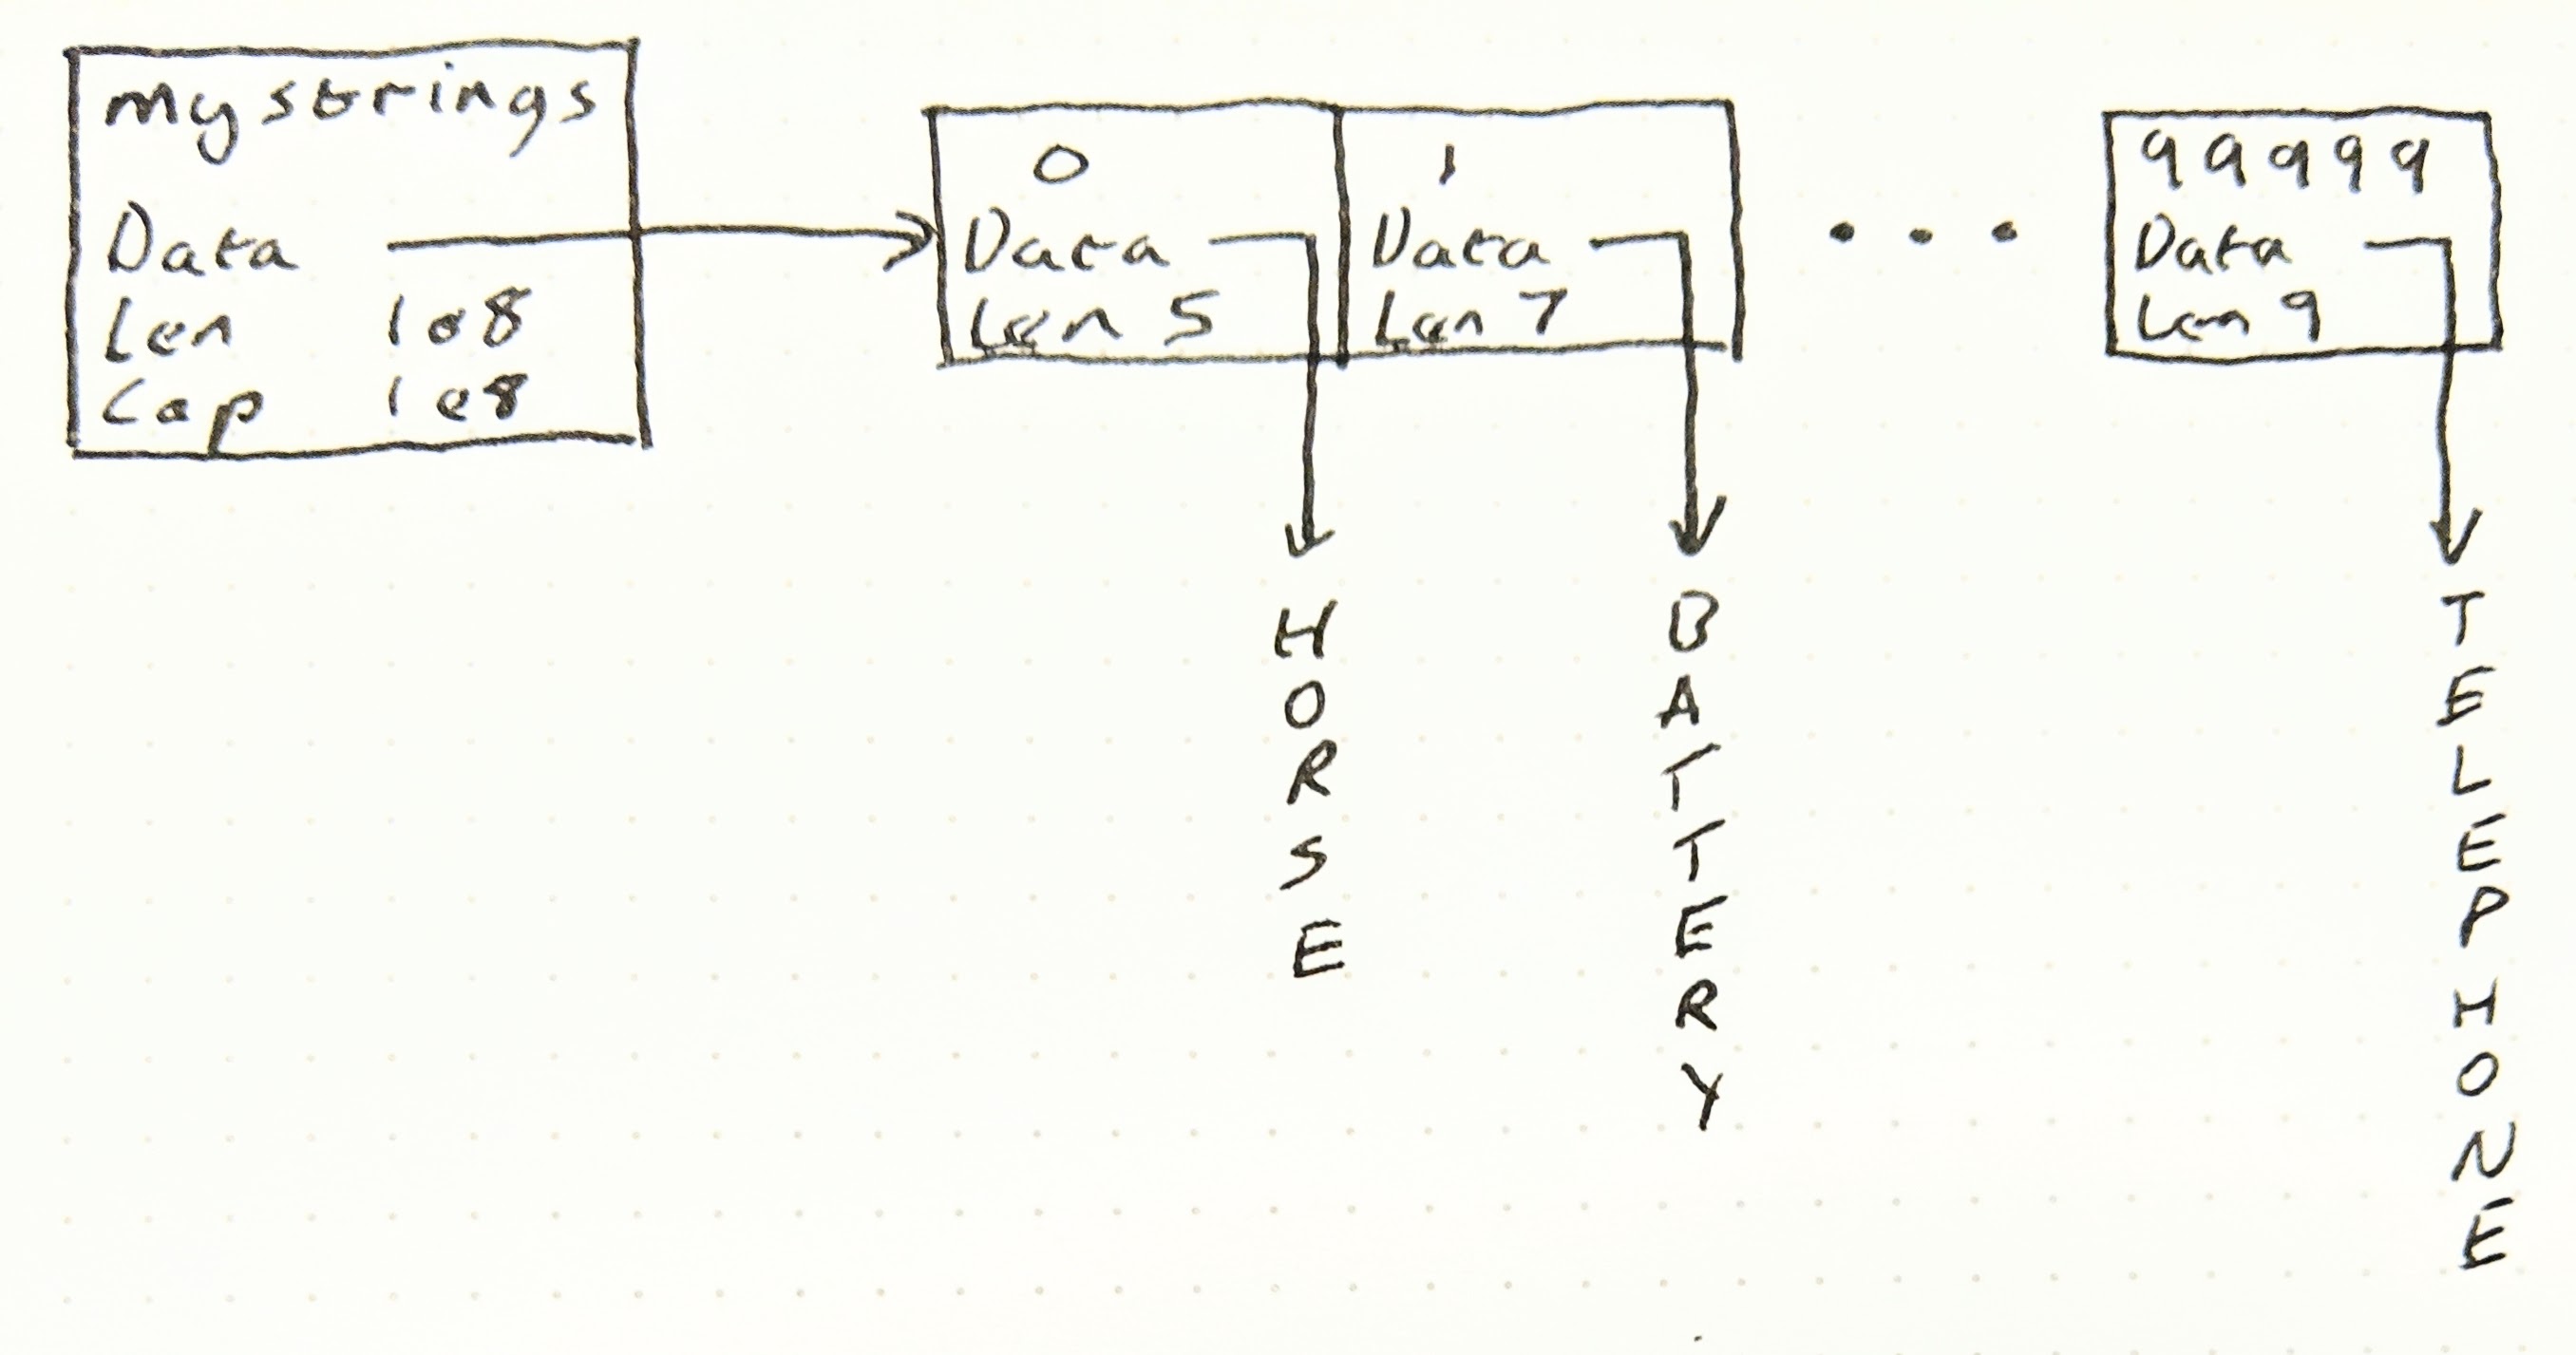 mystrings
Data
Len 1e8
Cap 1e8
0
Data
Len 5
1
Data
Len 7
99999
Data
Len 9
HORSE
BATTERY
TELEPHONE